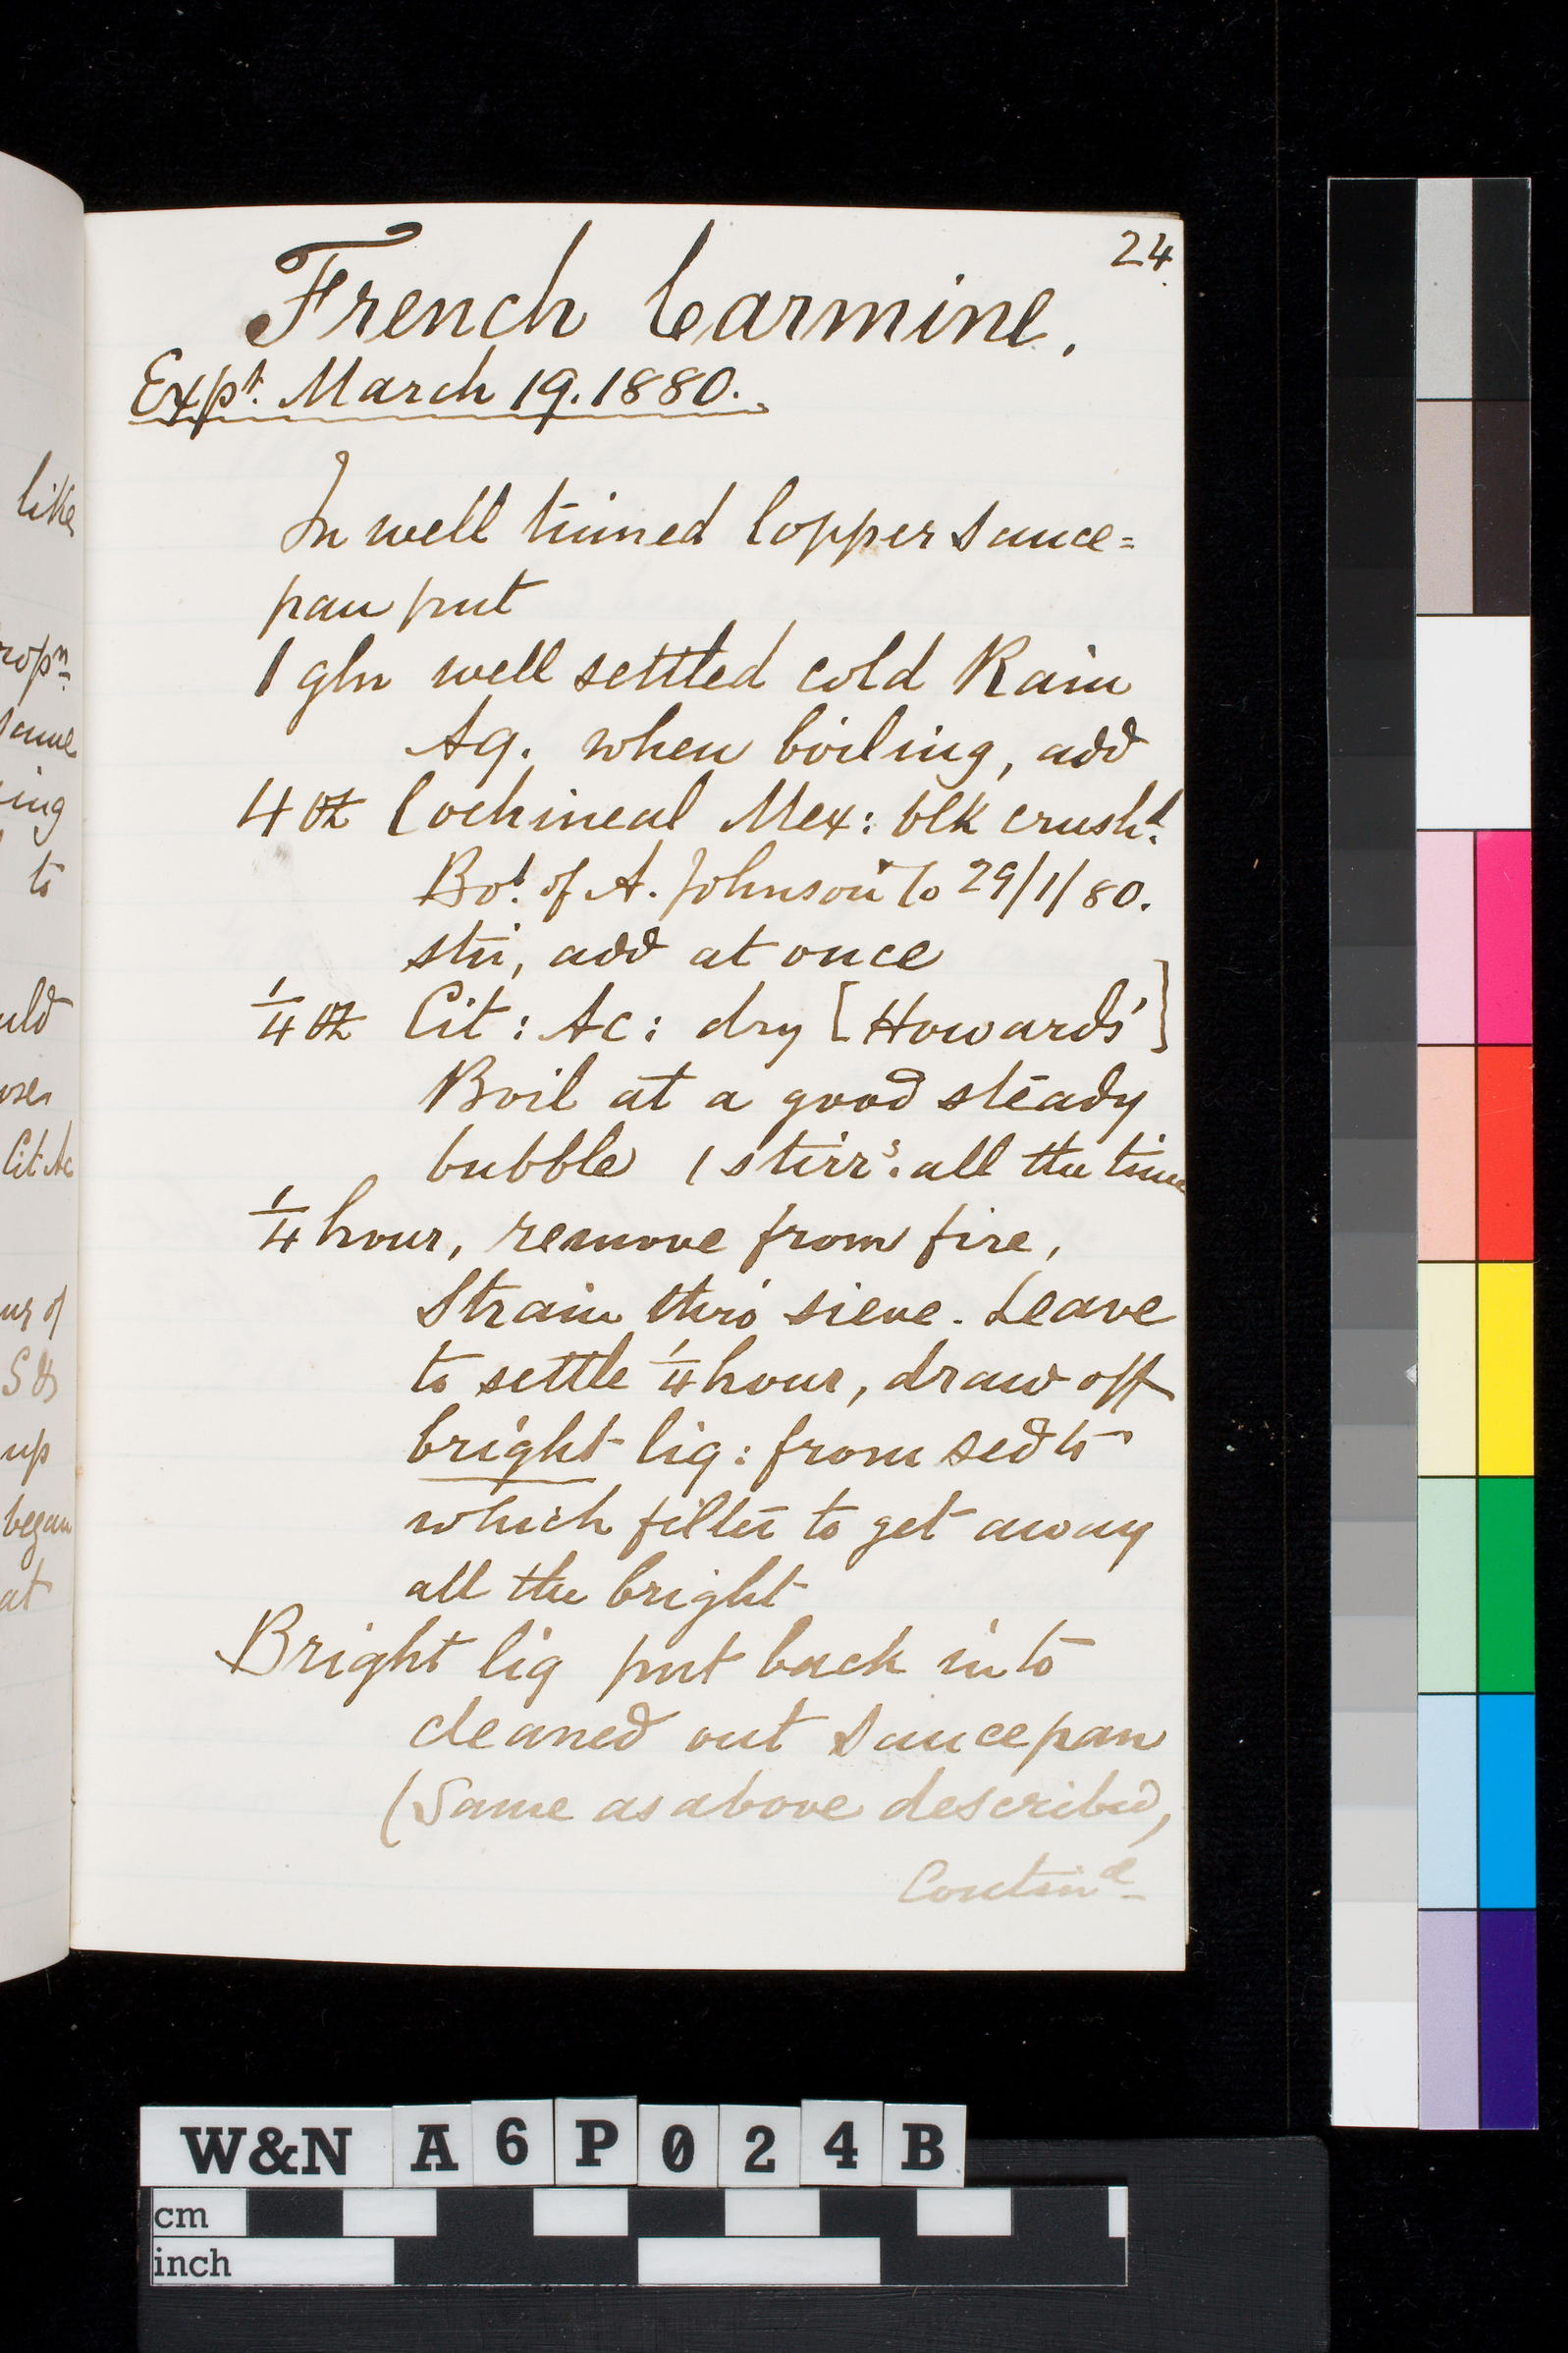 24.
French Carmine.
Expt. March 19. 1880.
In well tinned Copper Sauce=
pan put
1 gln well settled cold Rain
Aq. when boiling, add
4 oz Cochineal Mex: blk crushd.
Bot. of A. Johnson & Co 29/1/80.
stir, add at once
1/4 oz Cit: Ac: dry [Howards']
Boil at a good steady
bubble (stirrg. all the time
1/4 hour, remove from fire,
Strain thro' sieve. Leave
to settle 1/4 hour, draw off
bright liq: from sedt
which filter to get away
all the bright
Bright liq put back into
cleaned out Saucepan
(Same as above described,
Contind
like
ropn.
same
ing
to
uld
Cit Ac
up
began
at
W&N A6P024B
cm
inch